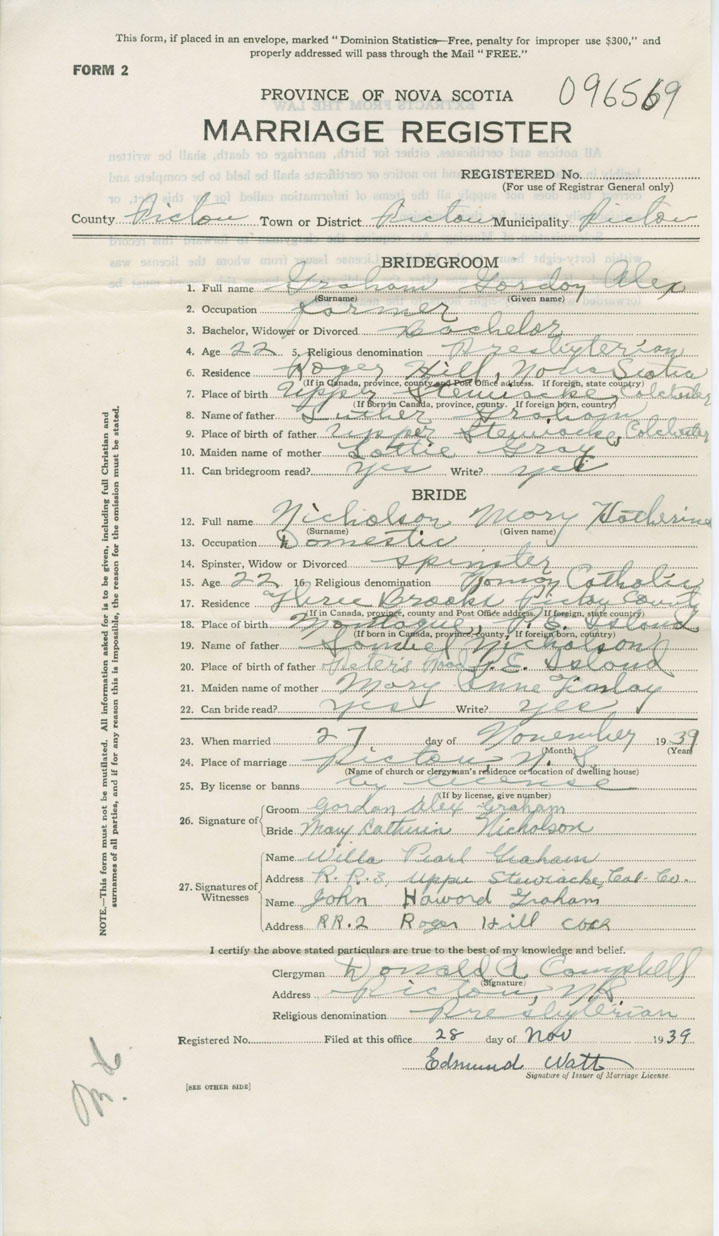 This form, if placed in an envelope, marked "Dominion Statistics—Free, penalty for improper use $300," and
properly addressed will pass through the Mail "FREE."
FORM 2
PROVINCE OF NOVA SCOTIA
096569
MARRIAGE REGISTER
REGISTERED No.
(For use of Registrar General only)
County Pictou Town or District Pictou Municipality Pictou
BRIDEGROOM
1. Full name Graham Gordon Alex
(Surname) (Given name)
2. Occupation Farmer
3. Bachelor, Widower or Divorced Bachelor
4. Age 22 5. Religious denomination Presbyterian
6. Residence Roger Hill, Nova Scotia
(If in Canada, province, county and Post Office address. If foreign, state country)
7. Place of birth Upper Stewiacke, Colchester
(If born in Canada, province, county. If foreign born, country)
8. Name of father Luther Graham
9. Place of birth of father Upper Stewiacke, Colchester
10. Maiden name of mother Lottie Gray
11. Can bridegroom read? yes Write? yes
BRIDE
12. Full name Nicholson Mary Katherine
(Surname) (Given name)
13. Occupation Domestic
14. Spinster, Widow or Divorced spinster
15. Age 22 16 Religious denomination Roman Catholic
17. Residence Three Brooks Pictou County
(If in Canada, province, county and Post Office address. If foreign, state country)
18. Place of birth Montague, P. E. Island
(If born in Canada, province, county. If foreign born, country)
19. Name of father Samuel Nicholson
20. Place of birth of father Peter's Road P.E. Island
21. Maiden name of mother Mary Anne Finlay
22. Can bride read? yes Write? yes
23. When married 27 day of November 1939
(Month) (Year)
24. Place of marriage Pictou, N. S.
(Name of church or clergyman's residence or location of dwelling house)
25. By license or banns by license
(If by license, give number)
26. Signature of Groom Gordon Alex Graham
Bride Mary Katherin Nicholson
27. Signatures of Witnesses
Name Willa Pearl Graham
Address R.R.3, Upper Stewiacke, Col. Co.
Name John Howard Graham
Address RR.2 Roger Hill
I certify the above stated particulars are true to the best of my knowledge and belief.
Clergyman Donald A Campbell
(Signature)
Address Pictou, N.S.
Religious denomination Presbyterian
Registered No. Filed at this office 28 day of Nov 1939
Edmund Watt
Signature of Issuer of Marriage License.
[SEE OTHER SIDE]
NOTE.—This form must not be mutilated. All information asked for is to be given, including full Christian and
surnames of all parties, and if for any reason this is impossible, the reason for the omission must be stated.